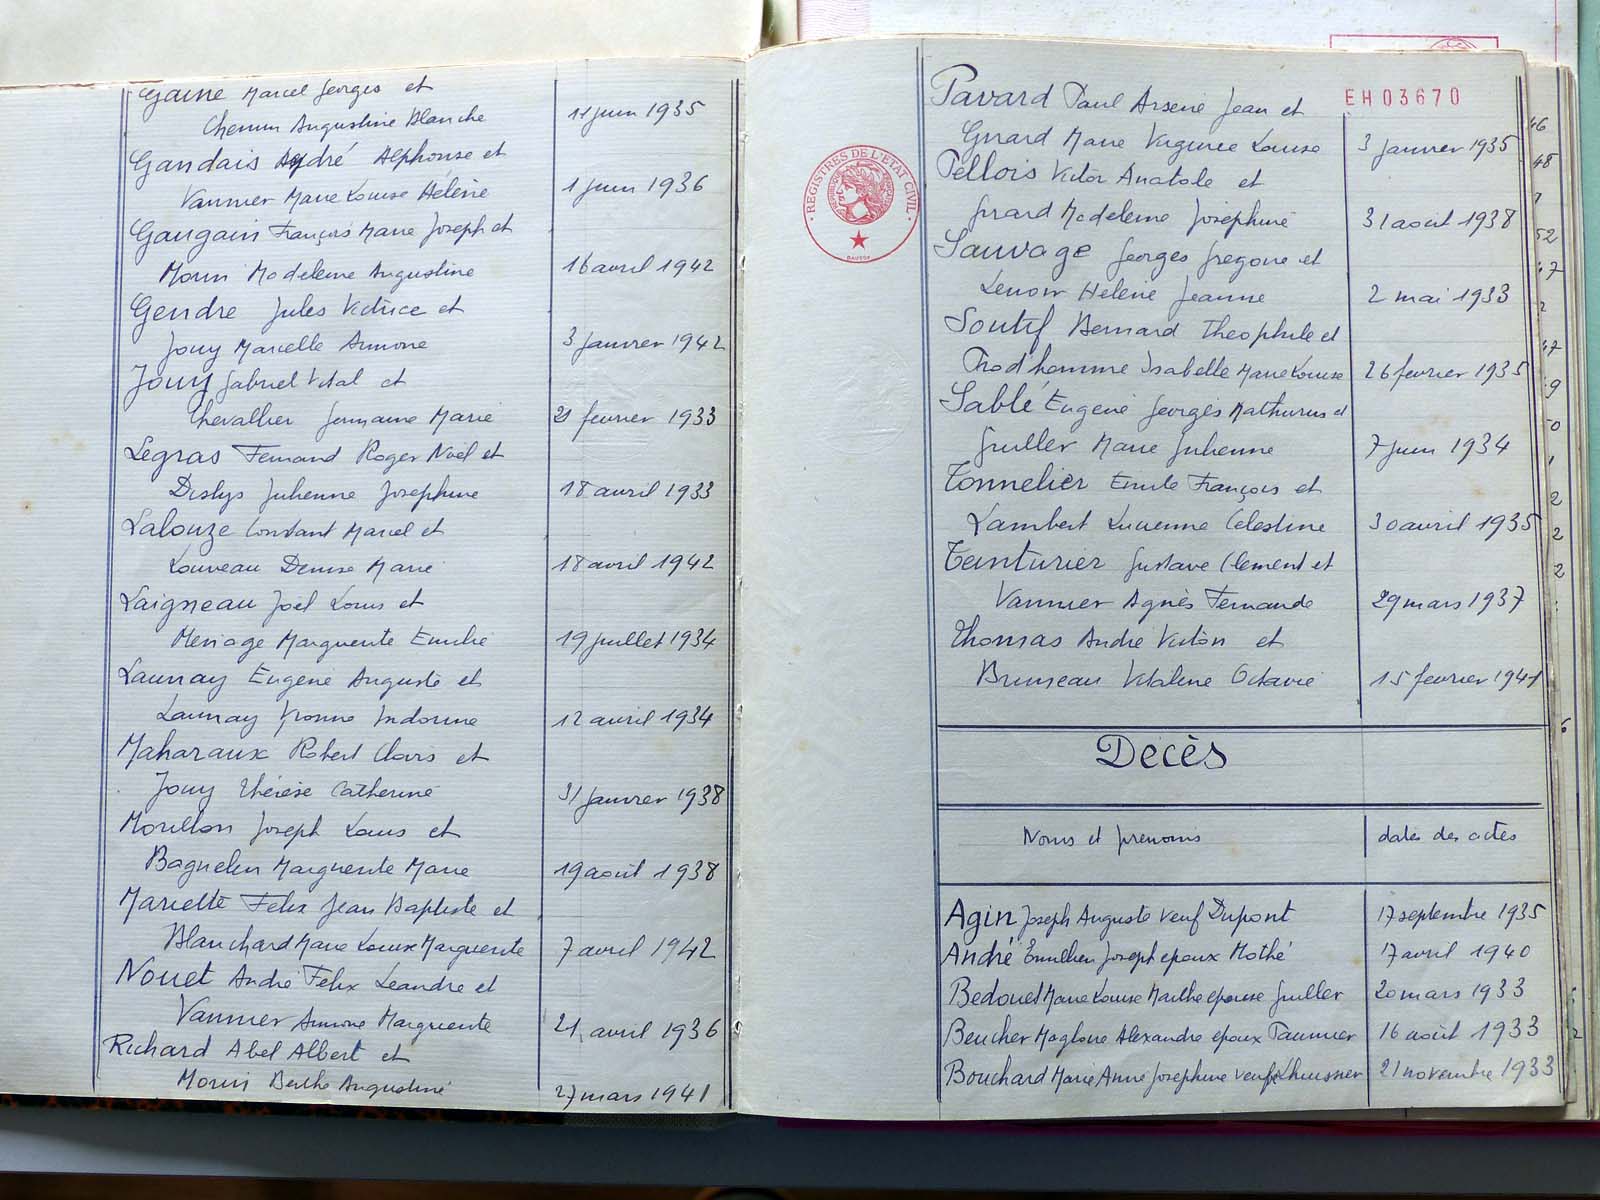 Gaine Marcel Georges et
Chemin Augustine Blanche 11 juin 1935
Gandais André Alphonse et
Vannier Marie Louise Hélène 1 juin 1936
Gaugain François Marie Joseph et
Morin Madeleine Augustine 16 avril 1942
Gendre Jules Victrice et
Jouy Marcelle Simone 3 janvier 1942
Jouy Gabriel Vital et
Chevallier Germaine Marie 21 fevrier 1933
Legras Fernand Roger Noël et
Deslys Julienne Josephine 18 avril 1933
Lalouze Constant Marcel et
Louveau Denise Marie 18 avril 1942
Laigneau Joël Louis et
Menage Marguerite Emilie 19 juillet 1934
Launay Eugène Auguste et
Launay Yvonne 12 avril 1934
Maharaux Robert Clovis et
Jouy Thérèse Catherine 31 janvier 1938
Morillon Joseph Louis et
Baguelin Marguerite Marie 19 août 1938
Mariette Felix Jean Baptiste et
Blanchard Marie Louise Marguerite 7 avril 1942
Nouet André Felix Leandre et
Vannier Simone Marguerite 21 avril 1936
Richard Abel Albert et
Morin Berthe Augustine 27 mars 1941
REGISTRES DE L'ETAT CIVIL
EH03670
Pavard Paul Arsene Jean et
Girard Marie Virginie Louise 3 janvier 1935
Pellois Victor Anatole et
Girard Madeleine Joséphine 31 aout 1938
Sauvage Georges Gregoire et
Lenoir Helene Jeanne 2 mai 1933
Soutif Bernard Theophile et
Prod'homme Isabelle Marie Louise 26 fevrier 1935
Sablé Eugene Georges Mathurin et
Guiller Marie Julienne 7 juin 1934
Tonnelier Emile François et
Lambert Lucienne Celestine 30 avril 1935
Teinturier Gustave Clement et
Vannier Agnès Fernande 29 mars 1937
Thomas André Victor et
Bruneau Vitaline Octavie 15 fevrier 1941
Decès
Noms et prenoms dates des actes
Agin Joseph Auguste veuf Dupont 17 septembre 1935
André Emilien Joseph epoux Mothé 17 avril 1940
Bedouet Marie Louise Marthe epouse Guiller 20 mars 1933
Beucher Magloire Alexandre epoux Taunier 16 août 1933
Bouchard Marie Anne Josephine 21 novembre 1933